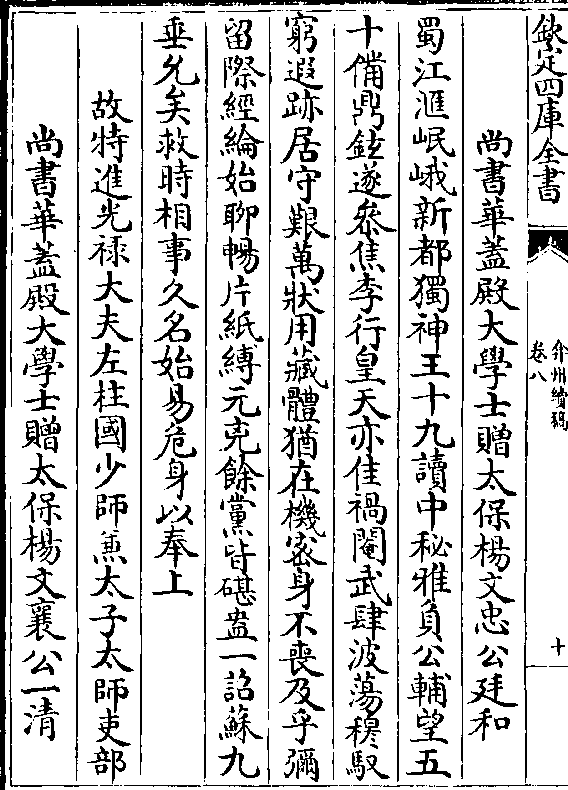 欽定四庫全書
弇州續稿
卷八
十
尚書華蓋殿大學士贈太保楊文忠公廷和
蜀江滙岷峨新都獨神王十九讀中秘雅負公輔望五
十備鼎鉉遂參焦李行皇天亦佳禍閹武肆波蕩穆馭
窮遐跡居守艱萬狀用藏體猶在機密身不喪及乎彌
留際經綸始聊暢片紙縛元兇餘黨皆碪盎一詔蘇九
垂允矣救時相事久名始易危身以奉上
故特進光祿大夫左柱國少師兼太子太師吏部
尚書華蓋殿大學士贈太保楊文襄公一清